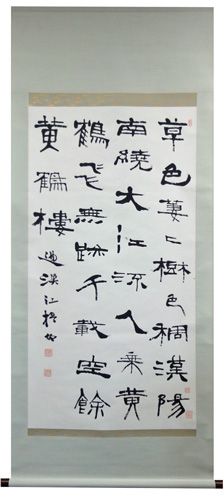 草色萋〻樹色稠漢陽
南繞大江流人乘黄
鶴飛無跡千載空餘
黄鶴樓
過漢江